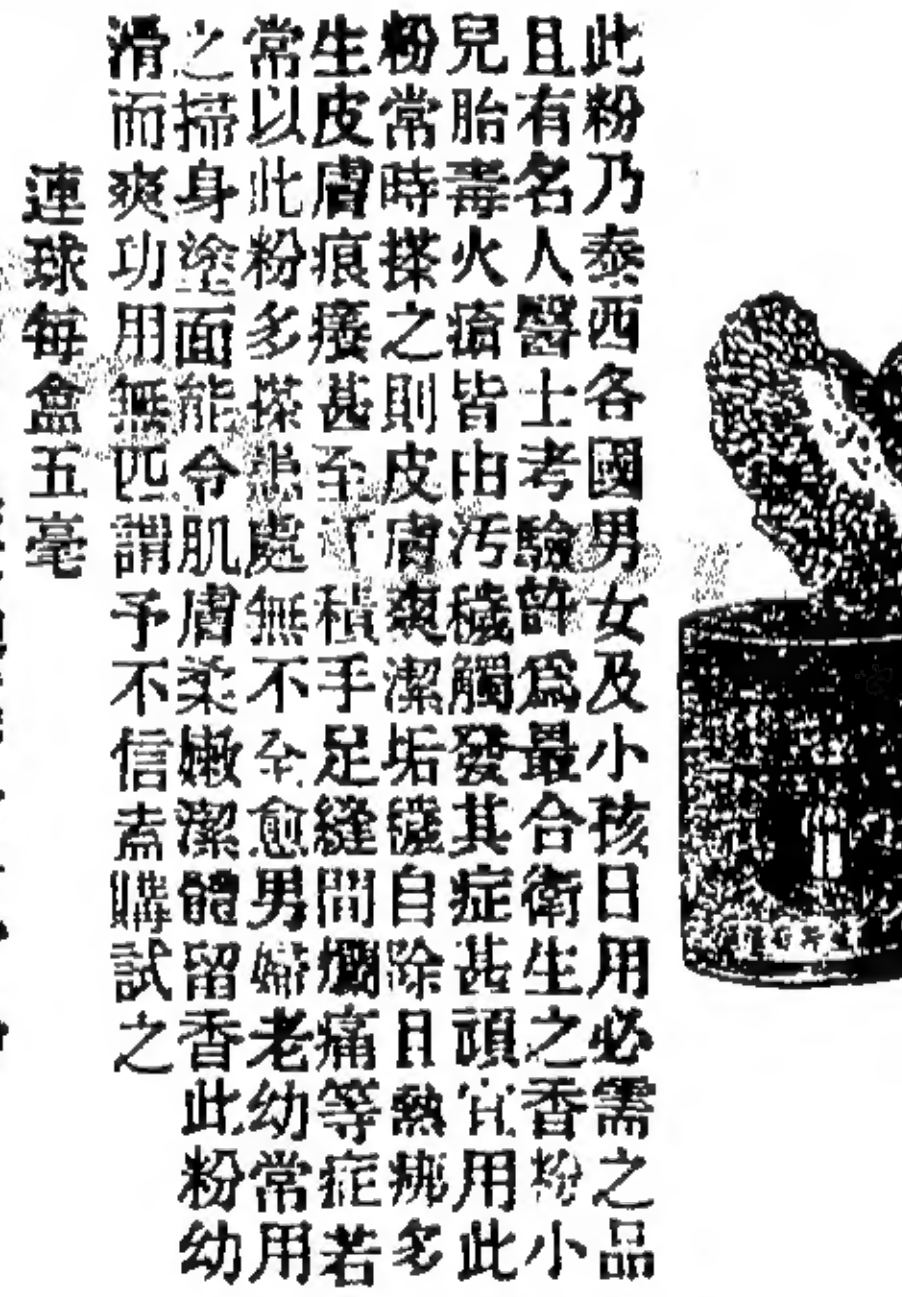 此粉乃泰西各國男女及小孩日用必需之品
且有名人醫士考驗許為最合衛生之香粉小
兒胎毒火瘡皆由汚穢觸發其症甚頑宜用此
粉常時搽之則皮膚爽潔垢穢自除且熱痱多
生皮膚痕癢甚至汗積手足縫間爛痛等症若
常以此粉多搽患處無不全愈男婦老幼常用
之掃身塗面能令肌膚柔嫩潔體留香此粉幼
滑而爽功用無匹謂予不信盍購試之
連球每盒五毫